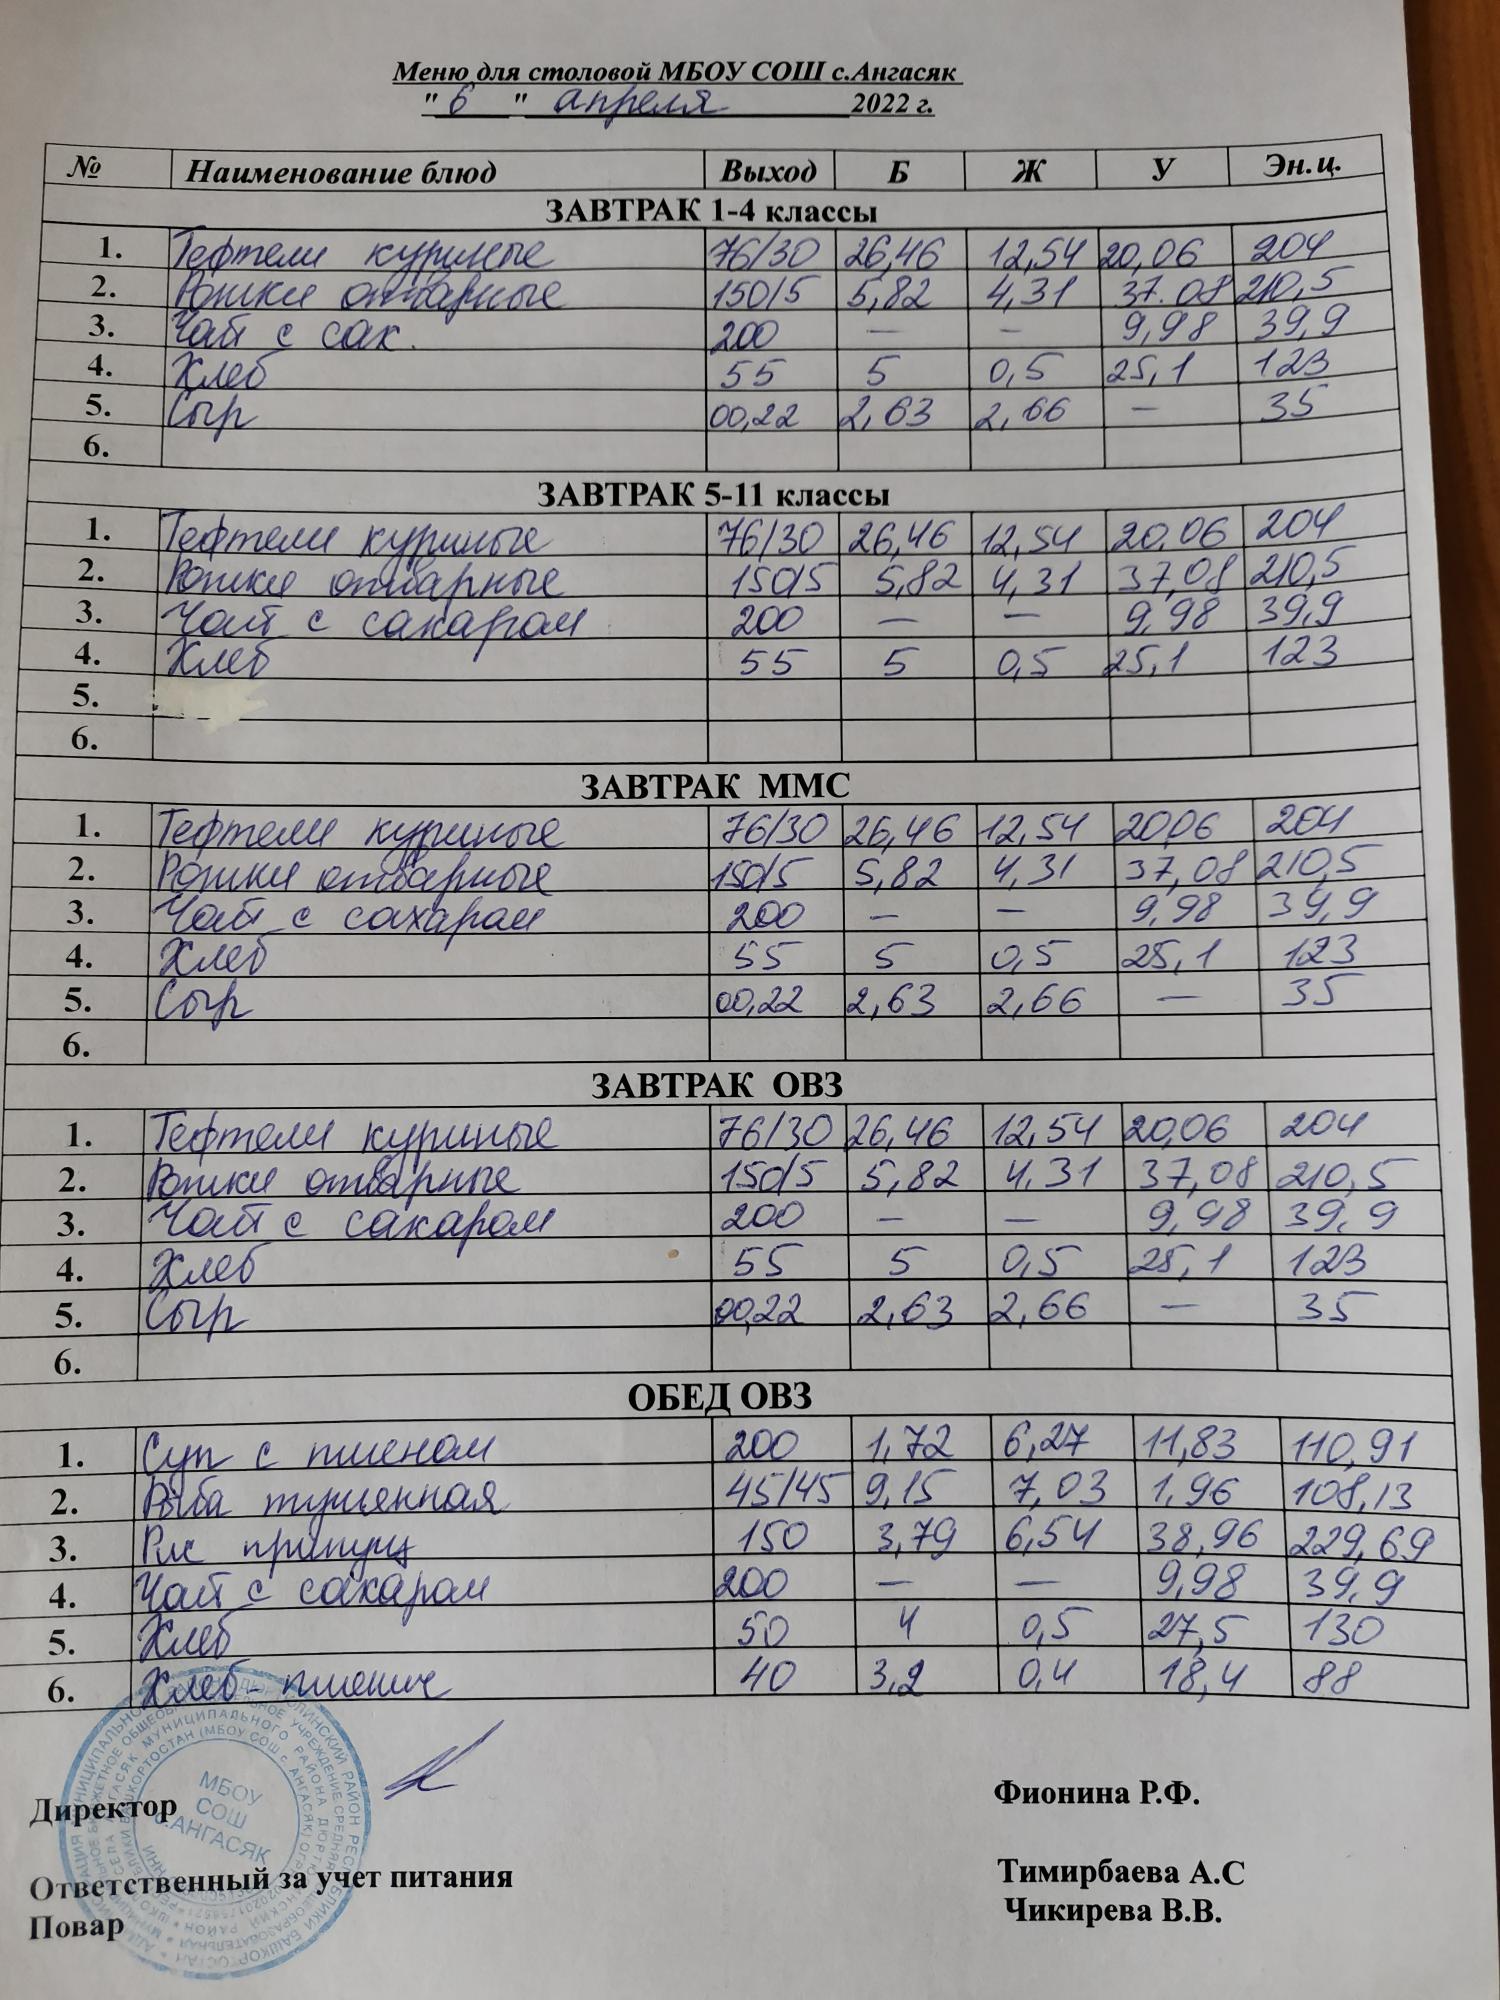 Меню для столовой МБОУ СОШ с.Ангасяк
" 6 " апреля 2022 г.
№ Наименование блюд Выход Б Ж У Эн.ц.
ЗАВТРАК 1-4 классы
1. Тефтели куриные 76/30 26,46 12,54 20,06 204
2. Рожки отварные 150/5 5,82 4,31 37.08 210,5
3. Чай с сах. 200 — — 9,98 39,9
4. Хлеб 55 5 0,5 25,1 123
5. Сыр 00,22 2,63 2,66 — 35
6.
ЗАВТРАК 5-11 классы
1. Тефтели куриные 76/30 26,46 12,54 20,06 204
2. Рожки отварные 150/5 5,82 4,31 37,08 210,5
3. Чай с сахаром 200 — — 9,98 39,9
4. Хлеб 55 5 0,5 25,1 123
5.
6.
ЗАВТРАК ММС
1. Тефтели куриные 76/30 26,46 12,54 20,06 204
2. Рожки отварные 150/5 5,82 4,31 37,08 210,5
3. Чай с сахаром 200 — — 9,98 39,9
4. Хлеб 55 5 0,5 25,1 123
5. Сыр 00,22 2,63 2,66 — 35
6.
ЗАВТРАК ОВЗ
1. Тефтели куриные 76/30 26,46 12,54 20,06 204
2. Рожки отварные 150/5 5,82 4,31 37,08 210,5
3. Чай с сахаром 200 — — 9,98 39,9
4. Хлеб 55 5 0,5 25,1 123
5. Сыр 00,22 2,63 2,66 — 35
6.
ОБЕД ОВЗ
1. Суп с пшеном 200 1,72 6,27 11,83 110,91
2. Рыба тушенная 45/45 9,15 7,03 1,96 108,13
3. Рис припущ 150 3,79 6,54 38,96 229,69
4. Чай с сахаром 200 — — 9,98 39,9
5. Хлеб 50 4 0,5 27,5 130
6. Хлеб-пшенич 40 3,2 0,4 18,4 88
МБОУ
СОШ
с.АНГАСЯК
Директор Фионина Р.Ф.
Ответственный за учет питания Тимирбаева А.С
Повар Чикирева В.В.